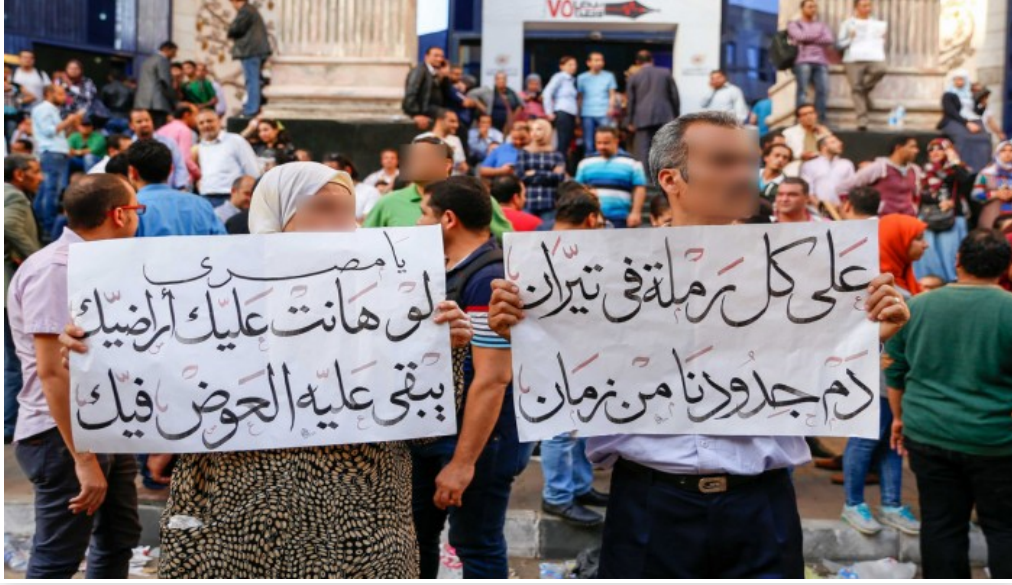 VO
على كل رملة فى تيران
دم جدودنا من زمان
يا مصرى
لو هانت عليك أراضيك
يبقى عليه العوض فيك